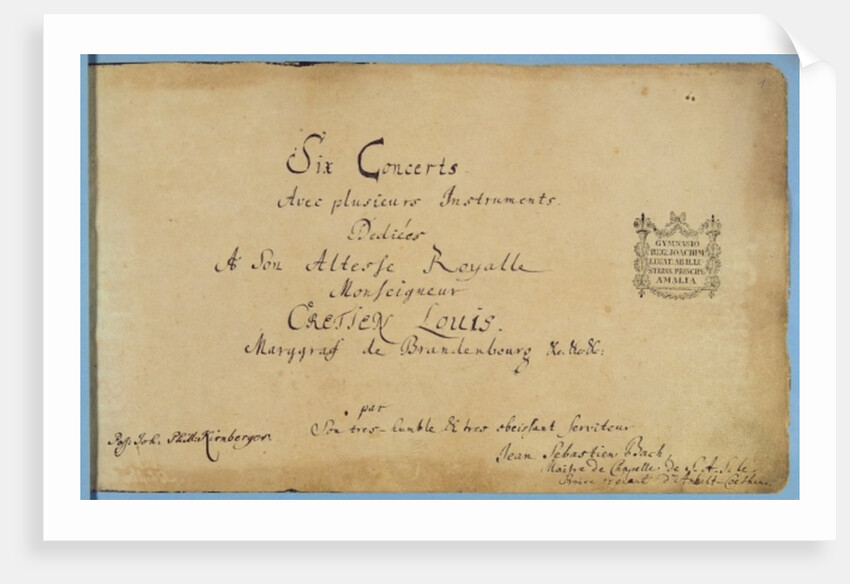 1
Six Concerts
Avec plusieurs Instruments.
Dediées
A Son Altesse Royalle
Monseigneur
CRETIEN Louis.
Marggraf de Brandenbourg &c.&c&c:
par
Son tres-humble & tres obeissant Serviteur
Jean Sebastien Bach,
Maitre de Chapelle de S. A. S. le
Prince regnant d'Anhalt-Coethen.
Joh. Kirnberger
GYMNASIO
REG. JOACHIM
LEGAT. AB ILLU
STRISS. PRINCIPE
AMALIA